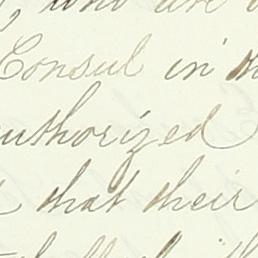 who are
Consul in
authorized
that their